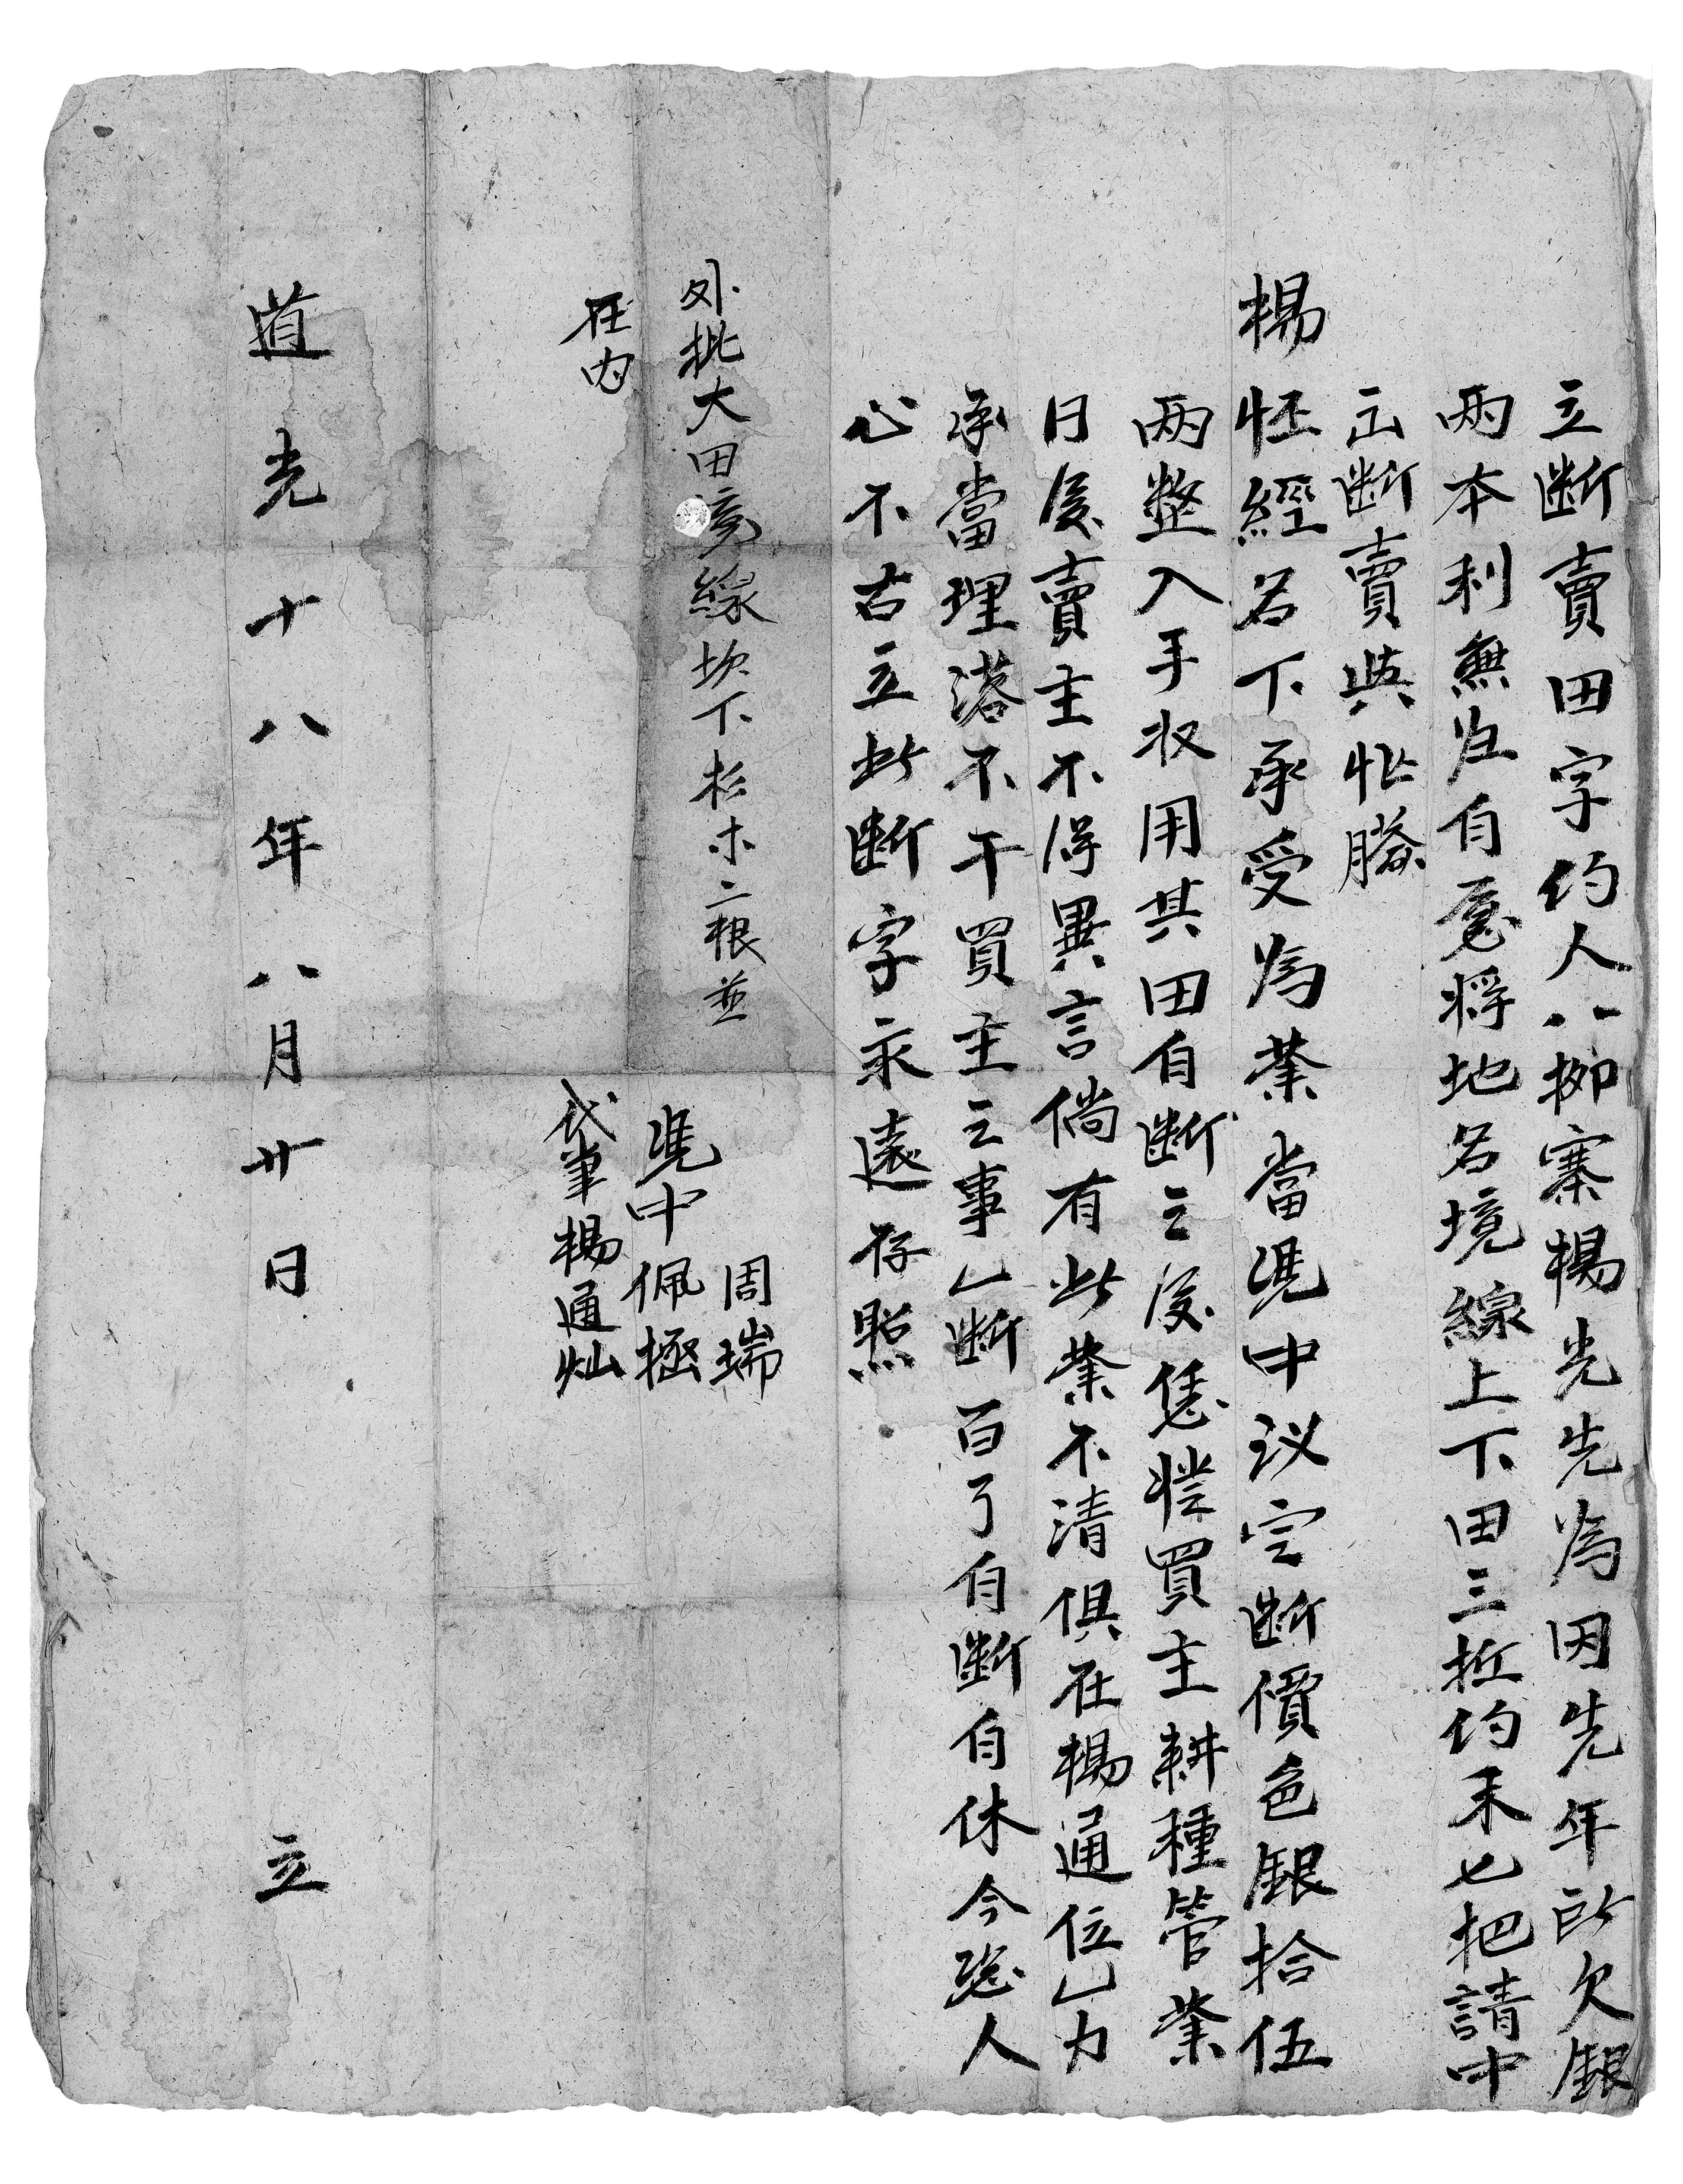 立断賣田字約人八拗寨楊光先為因先年所欠銀
两本利無归自愿将地名境線上下田三坵約禾七把請中
立断賣與
楊 經名下承受為業當凴中议定断價色銀拾伍
两整入手收用其田自断之後恁憑買主耕種管業
日後賣主不得異言倘有此業不清俱在楊通位乙力
承當理落不干買主之事乙断百了自断自休今恐人
心不古立此断字永遠存照
外批大田境線坎下杉木二根並
在内
周瑞
凴中佩極
代筆楊通灿
道光十八年八月廿日 立